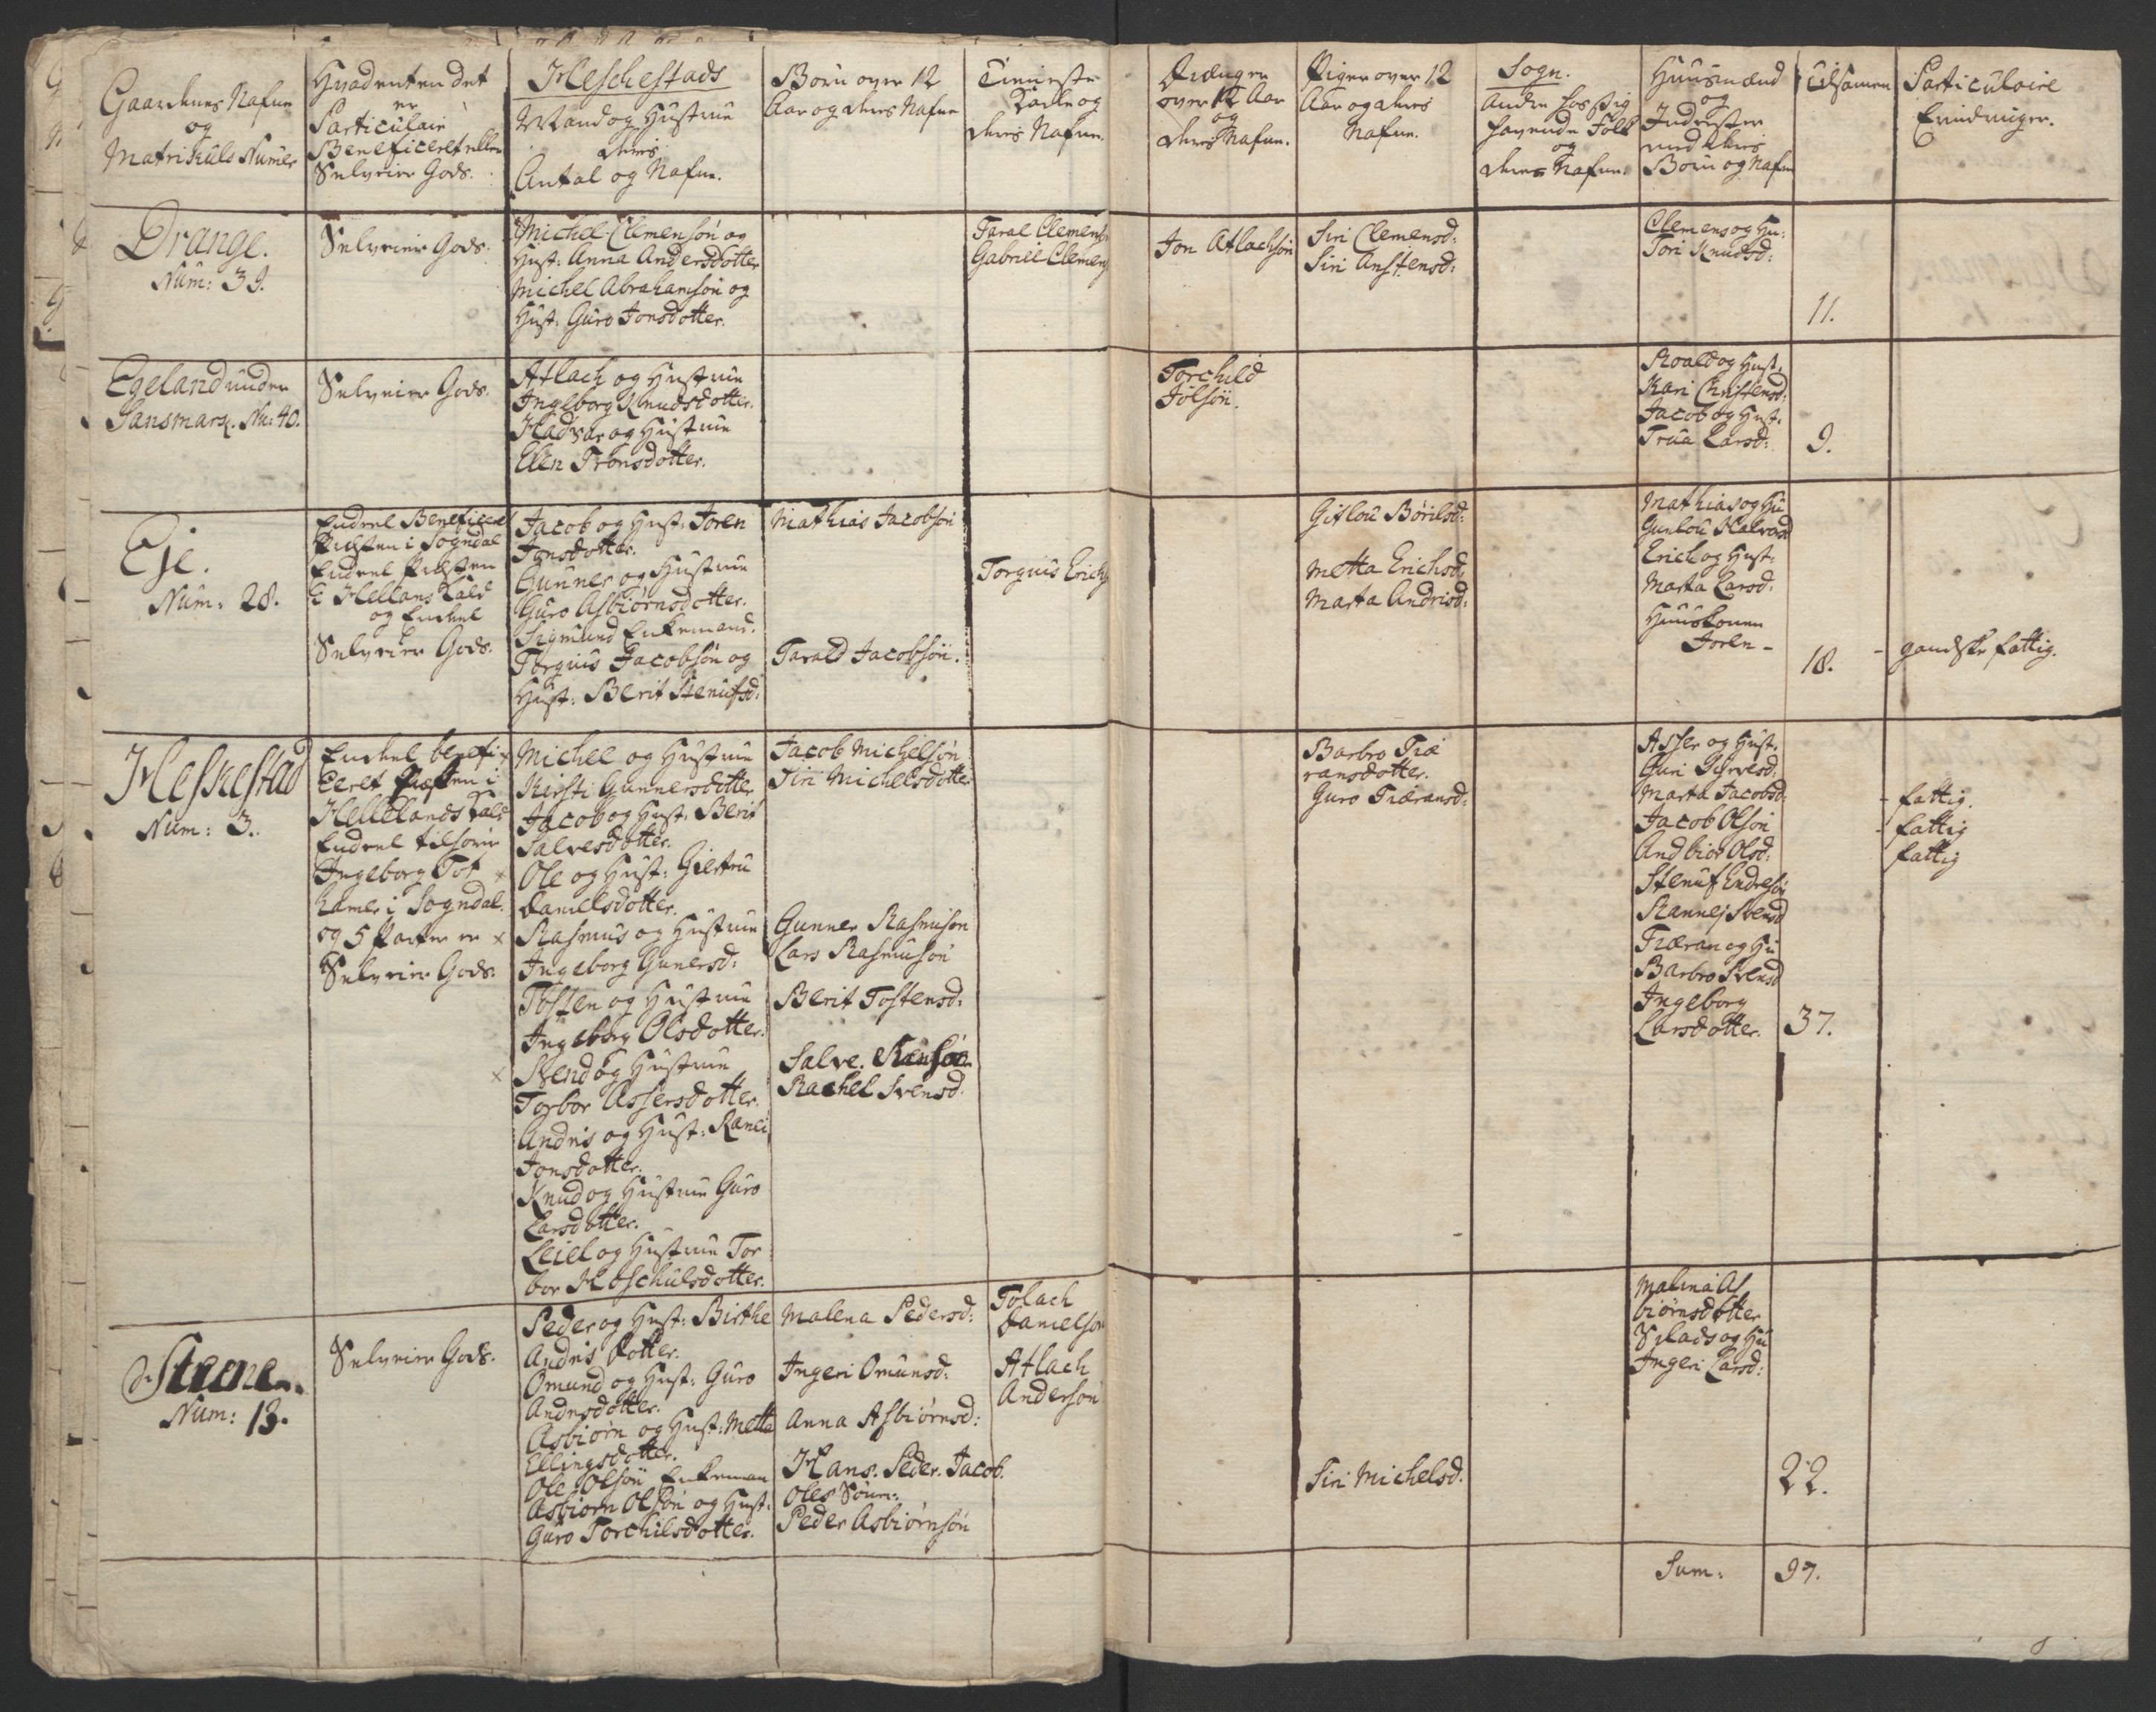 Gaardenes Nafne
og
Matrikuls Numer
Hvad enten det
er
Particulair
Beneficeret eller
Selveier Gods.
Heschestads
Mand og Hustrue
deris
Antal og Nafne.
Børn over 12
Aar og deres Nafne
Tienneste
Karle og
deres Nafne.
Drenger
over 12 Aar
og
deres Nafne.
Piger over 12
Aar og deres
Nafne.
Sogn.
Andre hos sig
havende Folk
og
deres Nafne.
Huusmænd
og
Inderster
med deres
Børn og Nafne
Tilsamen
Particulaire
Erindringer.
Drange.
Num: 39.
Selveier Gods.
Michel Clemensøn og
Hust: Anna Andersdotter
Michel Abrahamsøn og
Hust: Guro Jonsdotter.
Taral Clemens
Gabriel Clemens
Jon Atlachsøn
Siri Clemensd:
Siri Anstensd:
Clemens og Hu:
Tori Knudsd:
11.
Egeland under
Sansmark. Nu: 40.
Selveier Gods.
Atlach og Hustrue
Ingeborg Knudsdotter.
Hadvar og Hustrue
Elen Tronsdotter.
Torchild
Jolsøn.
Roald og Hust.
Kari Christensd:
Jacob og Hust.
Trua Larsd:
9.
Eje.
Num: 28.
Endeel Beneficeret
Præsten i Sogndal
Endeel Præsten
i Hellans Kald
og Endeel
Selveier Gods.
Jacob og Hust: Joren
Jonsdotter.
Gunner og Hustrue
Guro Asbiørnsdotter.
Sigmund Enkemand.
Torguis Jacobsøn og
Hust: Berit Stenufsd:
Mathias Jacobsøn
Tarald Jacobsøn.
Torguis Erichs
Gitlou Børilsd:
Metta Erichsd:
Marta Andrisd:
Mathias og Hu
Gunlou Halvord
Erich og Hust:
Marta Larsd:
Huuskonen
Joren -
18.
- gandske fattig.
Heskestad
Num: 3.
Endeel benefi
ceret Præsten i
Hellelands Kald
Endeel tilhører
Ingeborg Tol
kamer i Sogndal.
og 5 Parter er
Selveier Gods.
Michel og Hustrue
Kirsti Gunnersdotter
Jacob og Hust. Berit
Salvesdotter.
Ole og Hust: Giertru
Danielsdotter.
Rasmus og Hustrue
Ingeborg Gunersd:
Tosten og Hustrue
Ingeborg Olsdotter.
Svend og Hustrue
Torbor Assersdotter.
Andris og Hust: Ranei
Jonsdotter.
Knud og Hustrue Guro
Larsdotter.
Leiel og Hustrue Tor
bor Hoschulsdotter.
Jacob Michelsøn
Siri Michelsdotter
Gunner Rasmusøn
Lars Rasmusøn
Berit Tostensd:
Salve. Svensøn
Rachel Svensd.
Barbro Tiæ
ransdotter.
Guro Tiæransd:
Asser og Hust.
Guri Torvesd:
Marta Jacobsd:
Jacob Olsøn
Andbior Olsd:
Stenuf Endresøn
Rannej Svensd
Tiæran og Hu
Barbro Svensd
Ingeborg
Larsdotter.
37.
- fattig.
- fattig
fattig
Steene.
Num: 13.
Selveier Gods.
Peder og Hust: Birthe
Andris Dotter.
Omund og Hust: Guro
Andrisdotter.
Asbiørn og Hust: Metta
Ellingsdotter.
Ole Olsøn Enkeman
Asbiørn Olsøn og Hust:
Guro Torchilsdotter.
Malena Pedersd:
Ingeri Omunsd:
Anna Asbiørnsd:
Hans. Peder. Jacob.
Oles Søner.
Peder Asbiørnsøn
Tolach
Danielsøn
Atlach
Andersøn
Siri Michelsd.
Malina As
biørnsdotter
Sivads og Hu
Ingeri Larsd:
22.
Sum: 97.